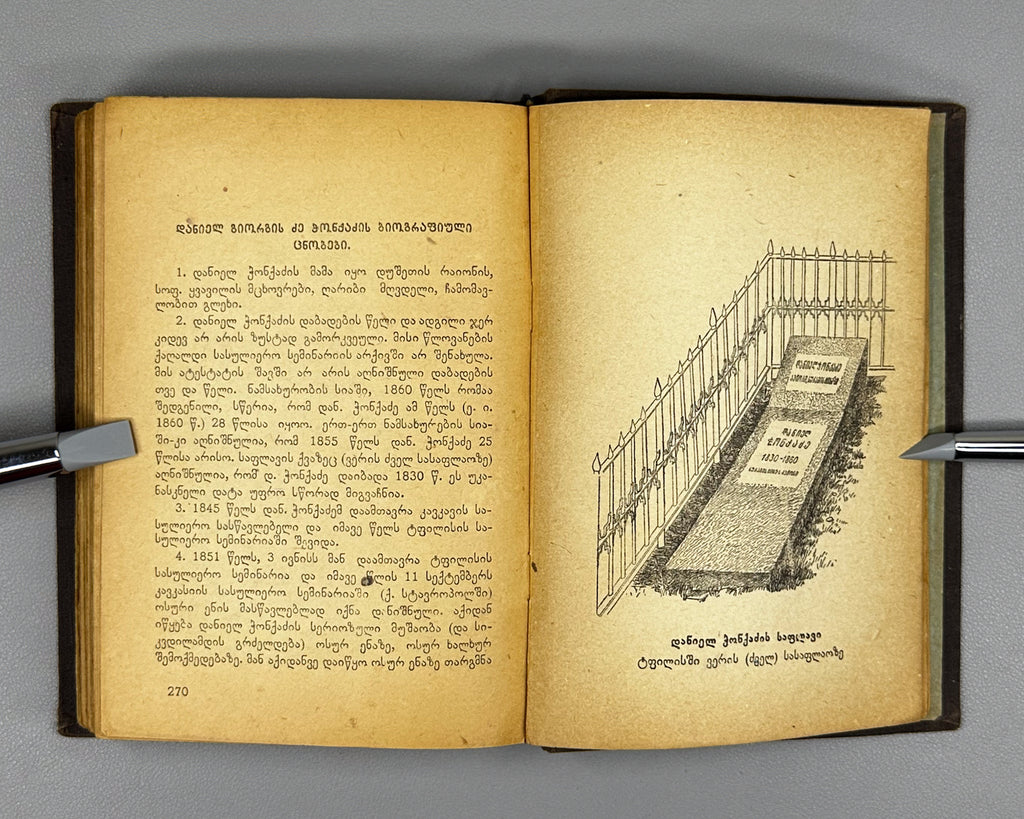 დანიელ გიორგის ძე ჭონქაძის ბიოგრაფიული
ცნობები.
1. დანიელ ჭონქაძის მამა იყო დუშეთის რაიონის,
სოფ. ყვავილის მცხოვრები, ღარიბი მღვდელი, ჩამომავ-
ლობით გლეხი.
2. დანიელ ჭონქაძის დაბადების წელი და ადგილი ჯერ
კიდევ არ არის ზუსტად გამორკვეული. მისი წლოვანების
ქაღალდი სასულიერო სემინარიის არქივში არ შენახულა.
მის ატესტატის შავში არ არის აღნიშნული დაბადების
თვე და წელი. ნამსახურობის სიაში, 1860 წელს რომაა
შედგენილი, სწერია, რომ დან. ჭონქაძე ამ წელს (ე. ი.
1860 წ.) 28 წლისა იყოო. ერთ-ერთ ნამსახურების სია-
ში-კი აღნიშნულია, რომ 1855 წელს დან. ჭონქაძე 25
წლისა არისო. საფლავის ქვაზეც (ვერის ძველ სასაფლაოზე)
აღნიშნულია, რომ დ. ჭონქაძე დაიბადა 1830 წ. ეს უკა-
ნასკნელი დატა უფრო სწორად მიგვაჩნია.
3. 1845 წელს დან. ჭონქაძემ დაამთავრა კავკავის სა-
სულიერო სასწავლებელი და იმავე წელს ტფილისის სა-
სულიერო სემინარიაში შევიდა.
4. 1851 წელს, 3 ივნისს მან დაამთავრა ტფილისის
სასულიერო სემინარია და იმავე წლის 11 სექტემბერს
კავკასიის სასულიერო სემინარიაში (ქ. სტავროპოლში)
ოსური ენის მასწავლებლად იქნა დანიშნული. აქიდან
იწყება დანიელ ჭონქაძის სერიოზული მუშაობა (და სი-
კვდილამდის გრძელდება) ოსურ ენაზე, ოსურ ხალხურ
შემოქმედებაზე. მან აქიდანვე დაიწყო ოსურ ენაზე თარგმნა
270
დანიელ
ჭონქაძე
1830-1860
დანიელ ჭონქაძის საფლავი
ტფილისში ვერის (ძველ) სასაფლაოზე